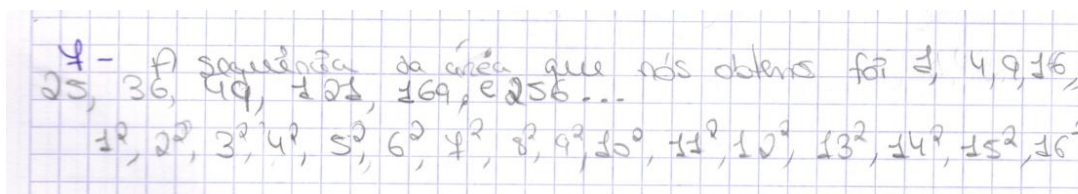 7 - A sequência da área que nós obtems foi 1, 4, 9, 16,
25, 36, 49, 121, 169, e 256...
1², 2², 3², 4², 5², 6², 7², 8², 9², 10², 11², 12², 13², 14², 15², 16²